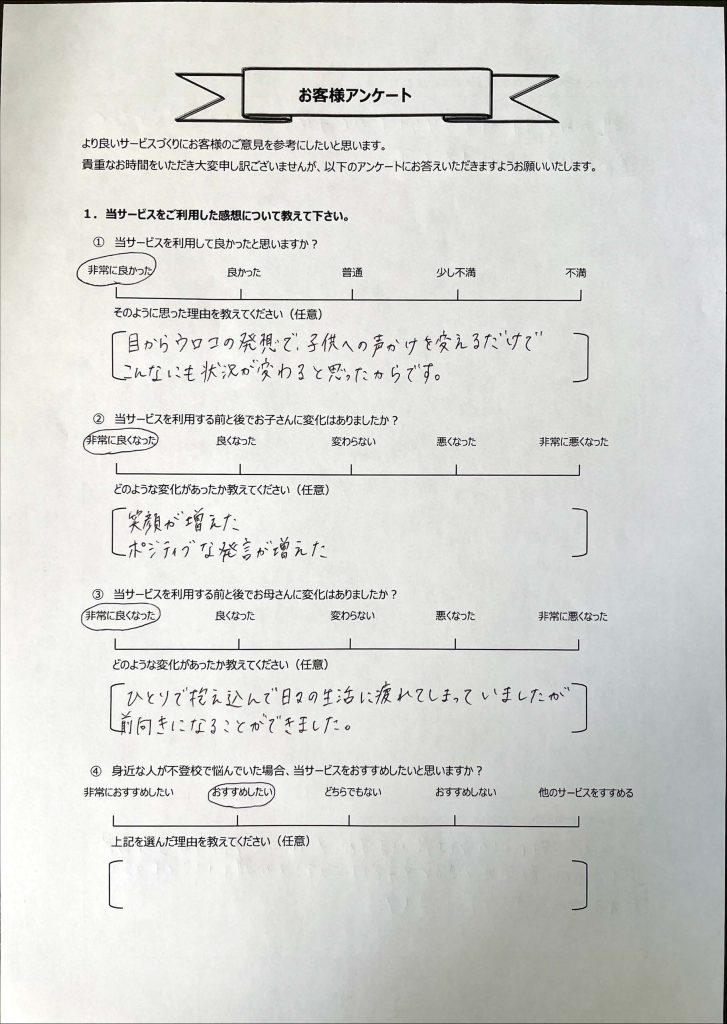 お客様アンケート
より良いサービスづくりにお客様のご意見を参考にしたいと思います。
貴重なお時間をいただき大変申し訳ございませんが、以下のアンケートにお答えいただきますようお願いいたします。
1．当サービスをご利用した感想について教えて下さい。
① 当サービスを利用して良かったと思いますか？
非常に良かった 良かった 普通 少し不満 不満
そのように思った理由を教えてください（任意）
目からウロコの発想で、子供への声かけを変えるだけで
こんなにも状況が変わると思ったからです。
② 当サービスを利用する前と後でお子さんに変化はありましたか？
非常に良くなった 良くなった 変わらない 悪くなった 非常に悪くなった
どのような変化があったか教えてください（任意）
笑顔が増えた
ポジティブな発言が増えた
③ 当サービスを利用する前と後でお母さんに変化はありましたか？
非常に良くなった 良くなった 変わらない 悪くなった 非常に悪くなった
どのような変化があったか教えてください（任意）
ひとりで抱え込んで日々の生活に疲れてしまっていましたが
前向きになることができました。
④ 身近な人が不登校で悩んでいた場合、当サービスをおすすめしたいと思いますか？
非常におすすめしたい おすすめしたい どちらでもない おすすめしない 他のサービスをすすめる
上記を選んだ理由を教えてください（任意）